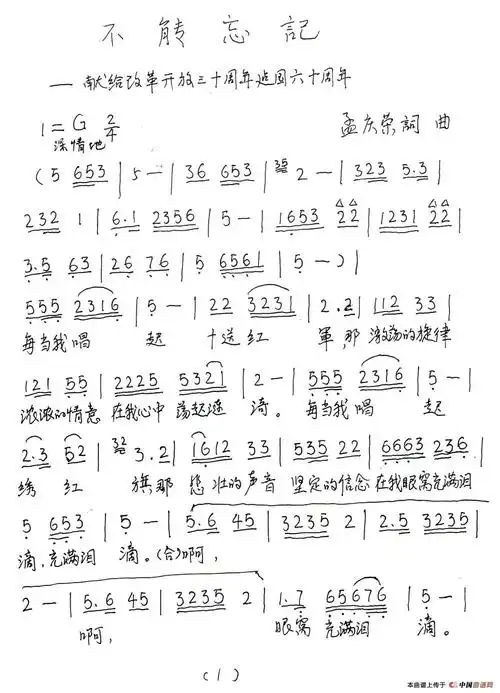 不能忘記
——献给改革开放三十周年建国六十周年
1=G 2/4 孟庆荣 詞 曲
深情地
(5 653 | 5 — | 36 653 | 35 2 — | 323 5.3 |
232 1 | 6.1 2356 | 5 — | 1653 22 | 1231 22 |
3.5 63 | 26 76 | 5 6561 | 5 — ) |
555 2316 | 5 — | 22 3231 | 2.2 | 112 33 |
每当我唱 起 十送红 軍,那 激荡的旋律
121 55 | 2225 5321 | 2 — | 555 2316 | 5 — |
浓浓的情意 在我心中 荡起涟 漪。 每当我唱 起
2.3 52 | 32 3.2 | 1612 33 | 535 22 | 6663 236 |
绣红 旗那 悲壮的声音 坚定的信念 在我眼窝充满泪
5 653 | 5 — | 5.6 45 | 3235 2 | 2.5 3235 |
滴,充满泪 滴。(合)啊,
2 — | 5.6 45 | 3235 2 | 1.7 65676 | 5 — |
啊, 眼窝 充满泪 滴。
(1)
本曲谱上传于 中国曲谱网